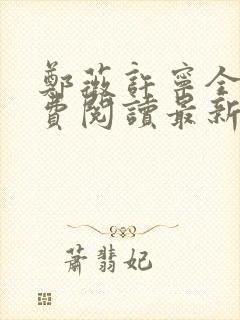 鄭薇許寧全
費閱讀最新
蕭翡妃